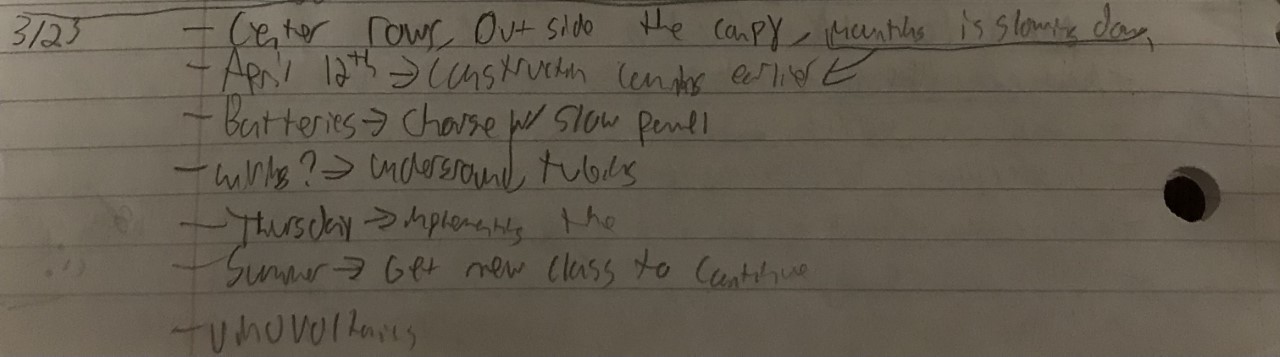 3/23 - Center rows, Outside the canpy, is slowing down,
- April 12th → Construction earlier
- Batteries → Charge w/ Slow panel
- ? → underground, tubing
- Thursday → Implementing the
- Summer → Get new class to Continue
-